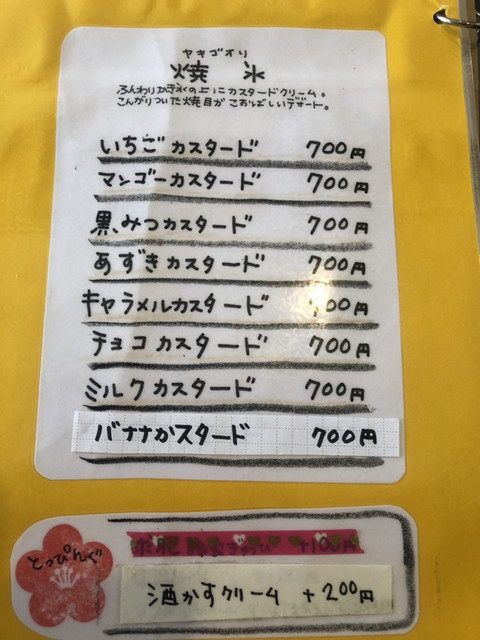 ヤキゴオリ
焼 氷
ふんわりかき氷の上にカスタードクリーム。
こんがりついた焼目がこおばしいデザート。
いちごカスタード 700円
マンゴーカスタード 700円
黒みつカスタード 700円
あずきカスタード 700円
キャラメルカスタード 700円
チョコカスタード 700円
ミルクカスタード 700円
バナナカスタード 700円
とっぴんぐ
+100円
酒かすクリーム +200円